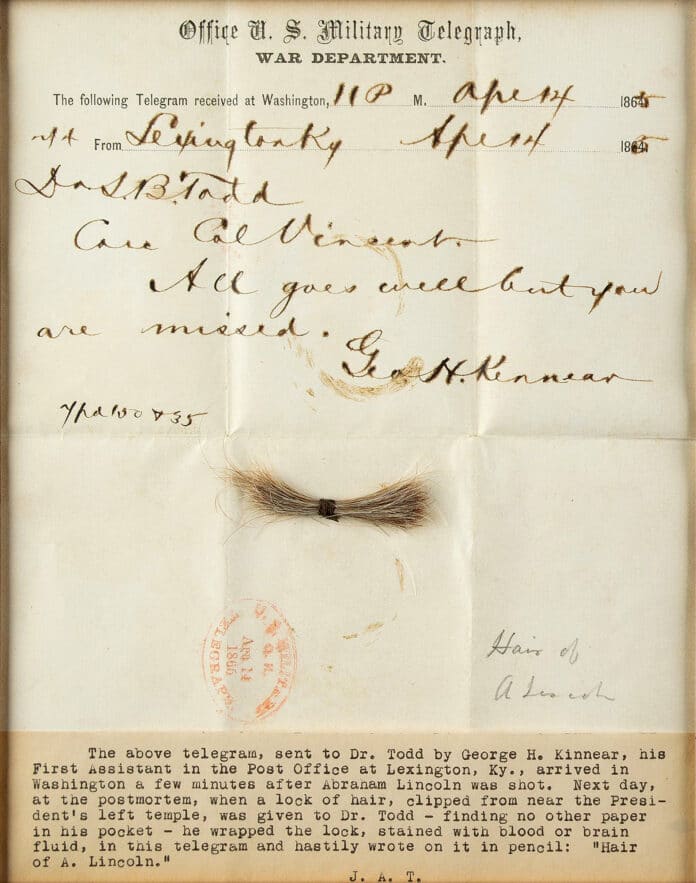 Office U. S. Military Telegraph,
WAR DEPARTMENT.
The following Telegram received at Washington, 11 P M. Apl 14 1865
From Lexington Ky Apl 14 1865
Dr L. B. Todd
Care Col Vincent.
All goes well but you
are missed.
Geo H. Kennear
35
U. S. MILITARY
Apr 14
1865
TELEGRAPH
Hair of
A Lincoln
The above telegram, sent to Dr. Todd by George H. Kinnear, his
First Assistant in the Post Office at Lexington, Ky., arrived in
Washington a few minutes after Abraham Lincoln was shot. Next day,
at the postmortem, when a lock of hair, clipped from near the Presi-
dent's left temple, was given to Dr. Todd - finding no other paper
in his pocket - he wrapped the lock, stained with blood or brain
fluid, in this telegram and hastily wrote on it in pencil: "Hair
of A. Lincoln."
J. A. T.